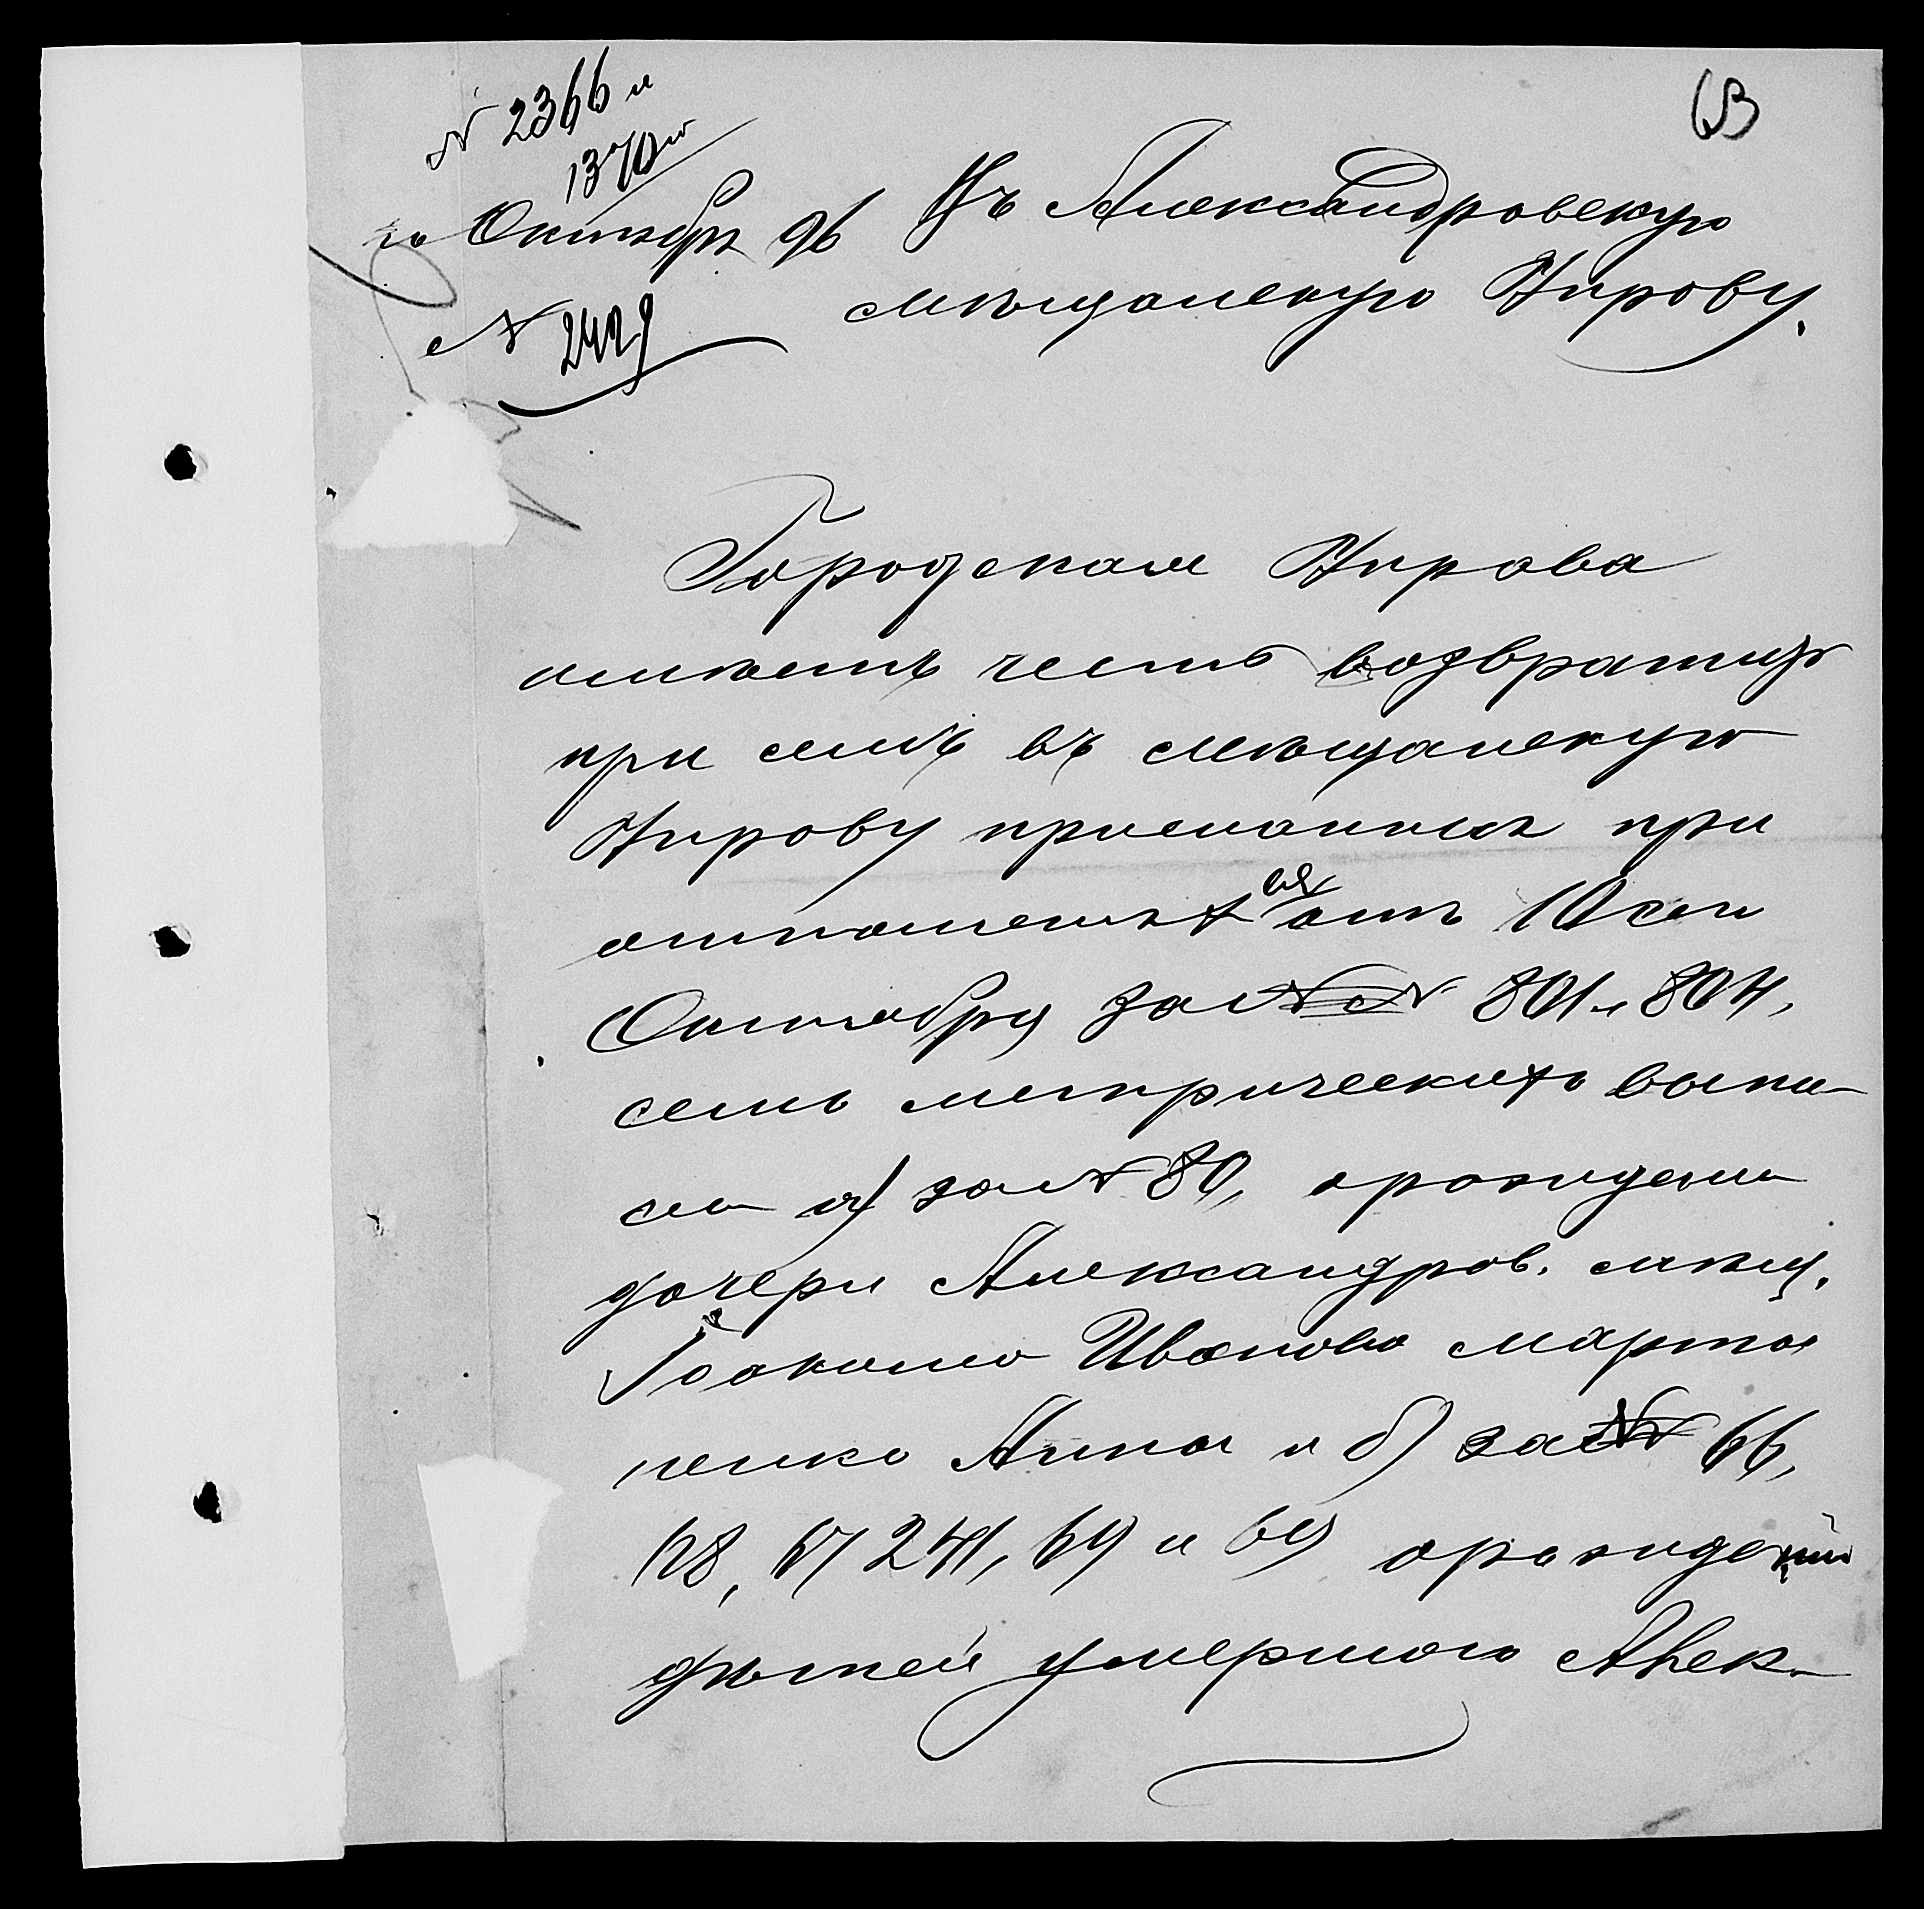 63
№ 2366 и
1370
Октября 96
№ 2429
Въ Александровскую
мѣщанскую Управу.
Городская Управа
имѣетъ честь возвратить
при семъ въ мѣщанскую
Управу присланныя при
отношеніяхъ ея отъ 10 сего
Октября за №№ 801 и 804,
семь метрическихъ выпи-
сей а) за № 80, о рожденіи
дочери Александров. мѣщ.
Іоакима Иванова Марты-
ненко Анны и б) за №№ 66,
128, 67, 241, 69 и 69 о рожденіи
дѣтей умершаго Алек-